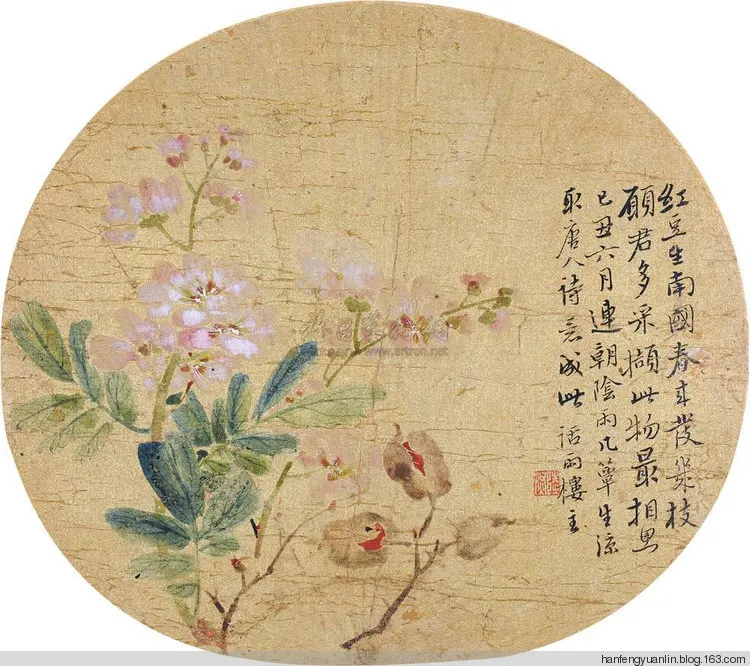 紅豆生南國春來發幾枝
願君多采擷此物最相思
己丑六月連朝陰雨几簟生涼
取唐人詩意成此 話雨樓主
www.artron.net
hanfengyuanlin.blog.163.com